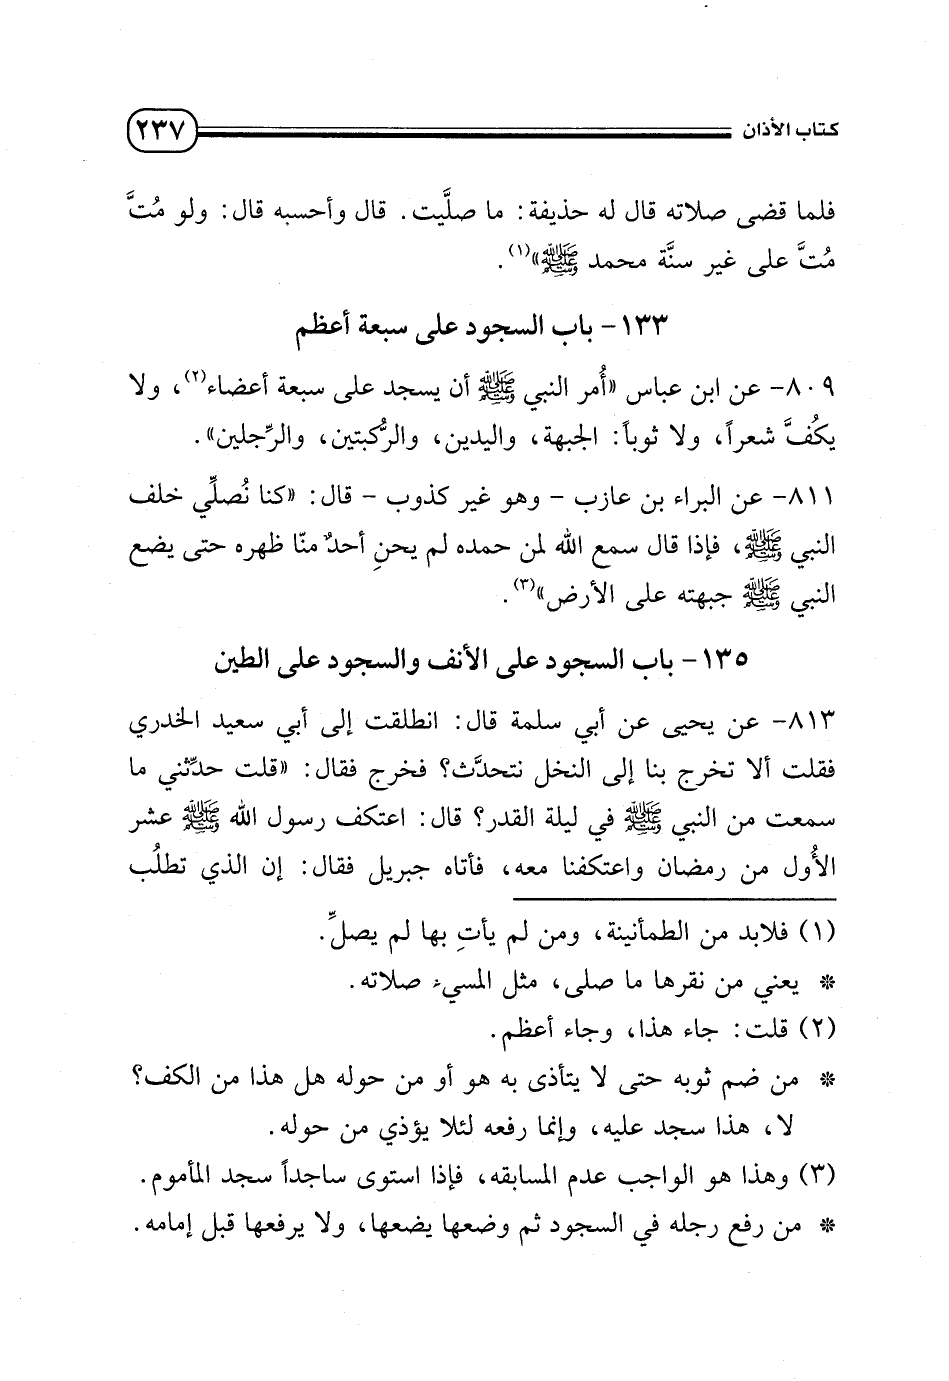 كتاب الأذان ٢٣٧
فلما قضى صلاته قال له حذيفة: ما صلَّيت. قال وأحسبه قال: ولو مُتَّ
مُتَّ على غير سنَّة محمد ﷺ»(١).
١٣٣- باب السجود على سبعة أعظم
٨٠٩- عن ابن عباس «أُمر النبي ﷺ أن يسجد على سبعة أعضاء(٢)، ولا
يكُفَّ شعراً، ولا ثوباً: الجبهة، واليدين، والرُّكبتين، والرِّجلين».
٨١١- عن البراء بن عازب - وهو غير كذوب - قال: «كنا نُصلِّي خلف
النبي ﷺ، فإذا قال سمع الله لمن حمده لم يحنِ أحدٌ منّا ظهره حتى يضع
النبي ﷺ جبهته على الأرض»(٣).
١٣٥- باب السجود على الأنف والسجود على الطين
٨١٣- عن يحيى عن أبي سلمة قال: انطلقت إلى أبي سعيد الخدري
فقلت ألا تخرج بنا إلى النخل نتحدَّث؟ فخرج فقال: «قلت حدِّثني ما
سمعت من النبي ﷺ في ليلة القدر؟ قال: اعتكف رسول الله ﷺ عشر
الأُول من رمضان واعتكفنا معه، فأتاه جبريل فقال: إن الذي تطلُب
(١) فلابد من الطمأنينة، ومن لم يأتِ بها لم يصلِّ.
* يعني من نقرها ما صلى، مثل المسيء صلاته.
(٢) قلت: جاء هذا، وجاء أعظم.
* من ضم ثوبه حتى لا يتأذى به هو أو من حوله هل هذا من الكف؟
لا، هذا سجد عليه، وإنما رفعه لئلا يؤذي من حوله.
(٣) وهذا هو الواجب عدم المسابقه، فإذا استوى ساجداً سجد المأموم.
* من رفع رجله في السجود ثم وضعها يضعها، ولا يرفعها قبل إمامه.